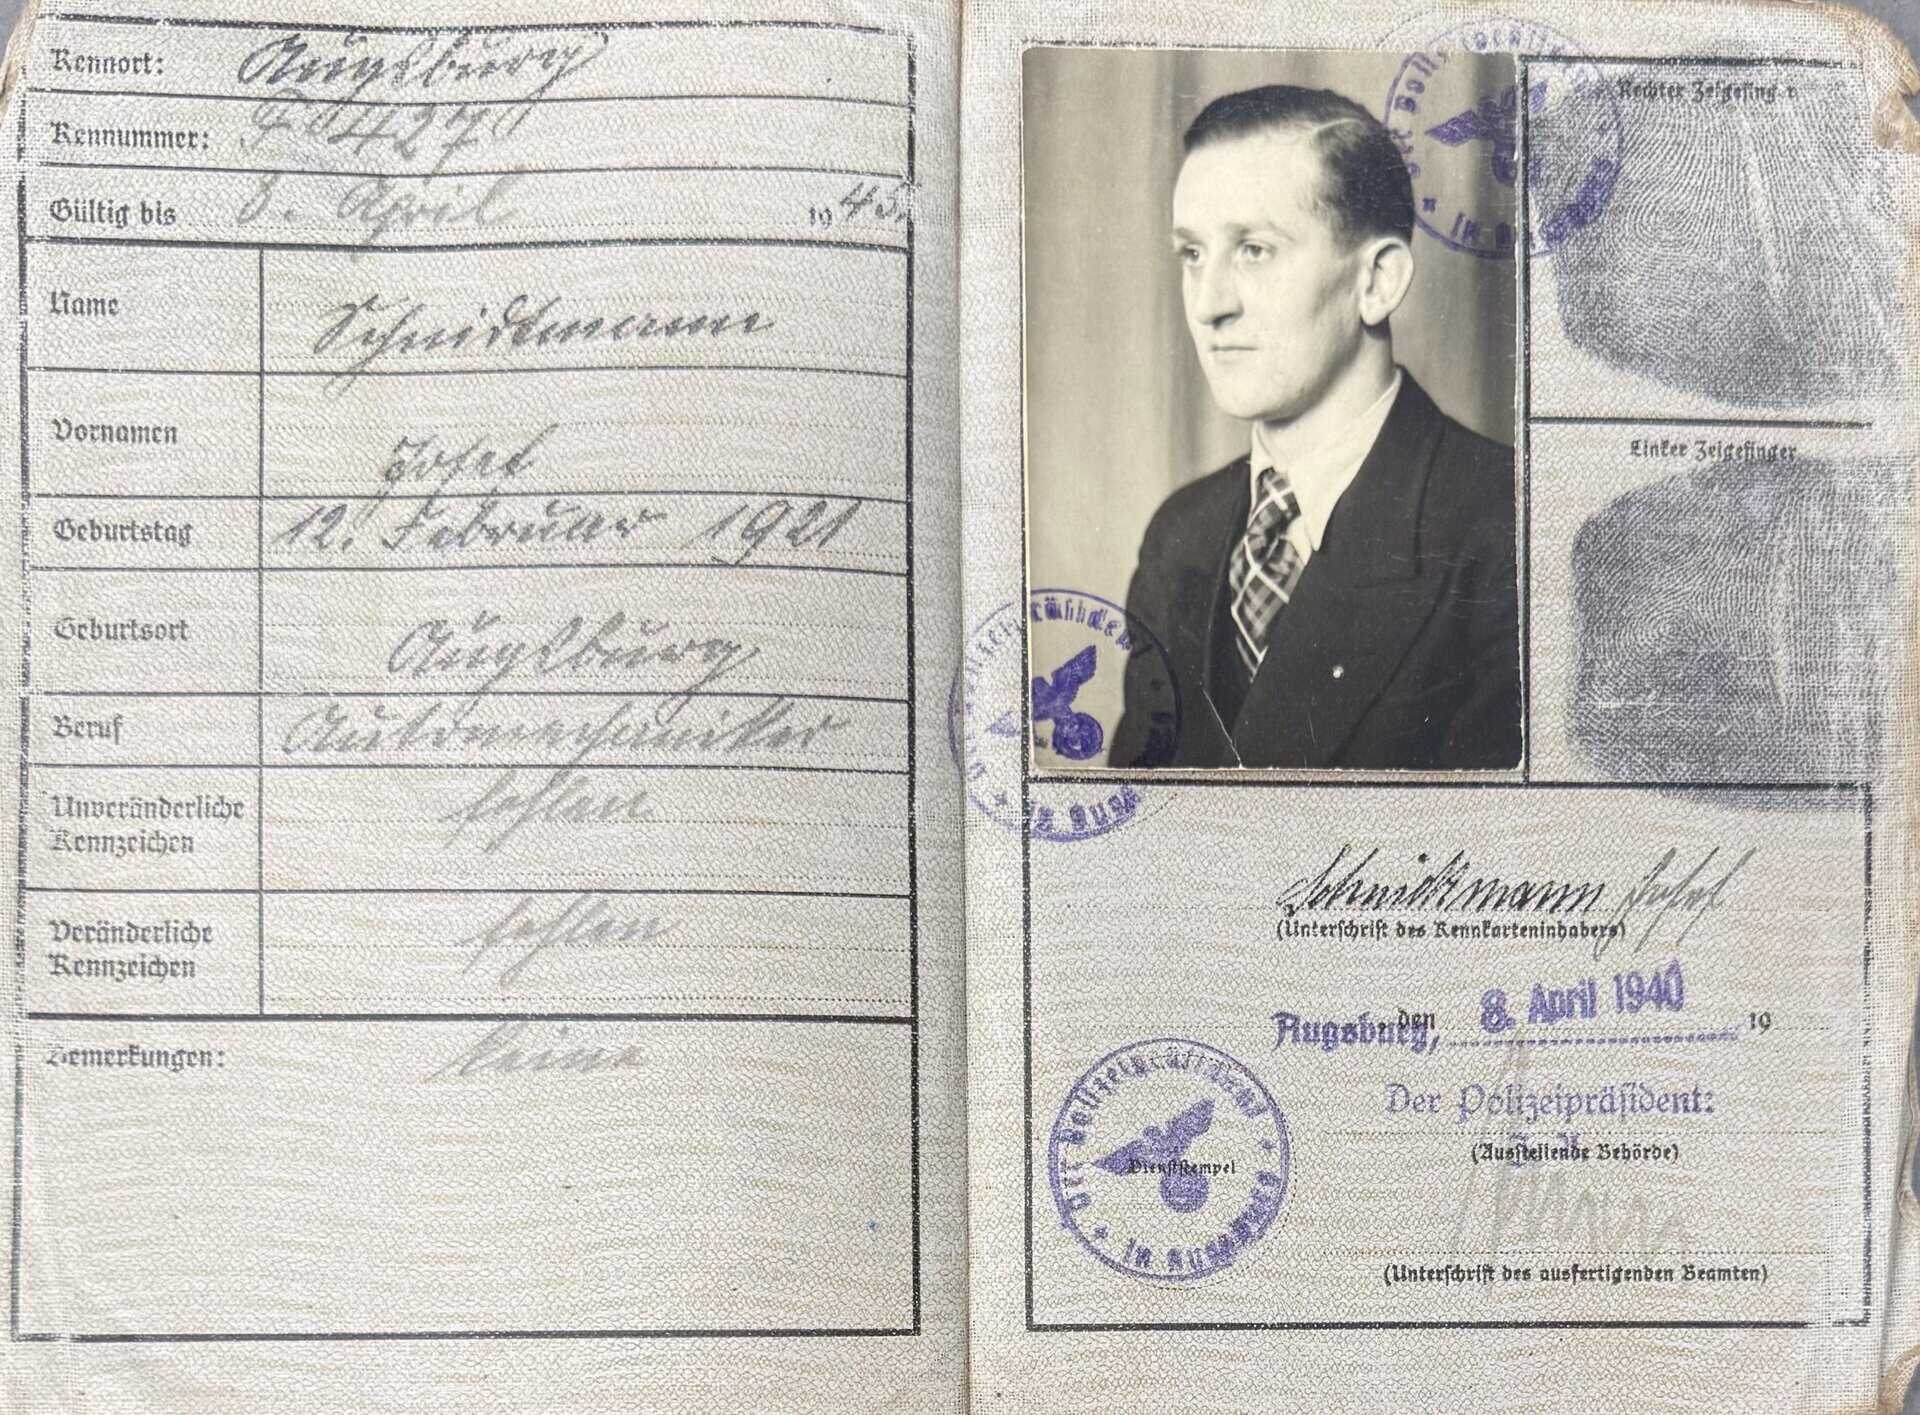 Kennort: Augsburg
Kennummer: F 0427
Gültig bis 8. April 1945.
Name Schmidtmann
Vornamen Josef
Geburtstag 12. Februar 1921
Geburtsort Augsburg
Beruf Automechaniker
Unveränderliche Kennzeichen fehlen
Veränderliche Kennzeichen fehlen
Bemerkungen: keine
Rechter Zeigefinger
Linker Zeigefinger
Josef
(Unterschrift des Kennkarteninhabers)
Augsburg, den 8. April 1940 19
Der Polizeipräsident:
(Ausstellende Behörde)
Der Polizeipräsident in Augsburg
Dienststempel
(Unterschrift des ausfertigenden Beamten)